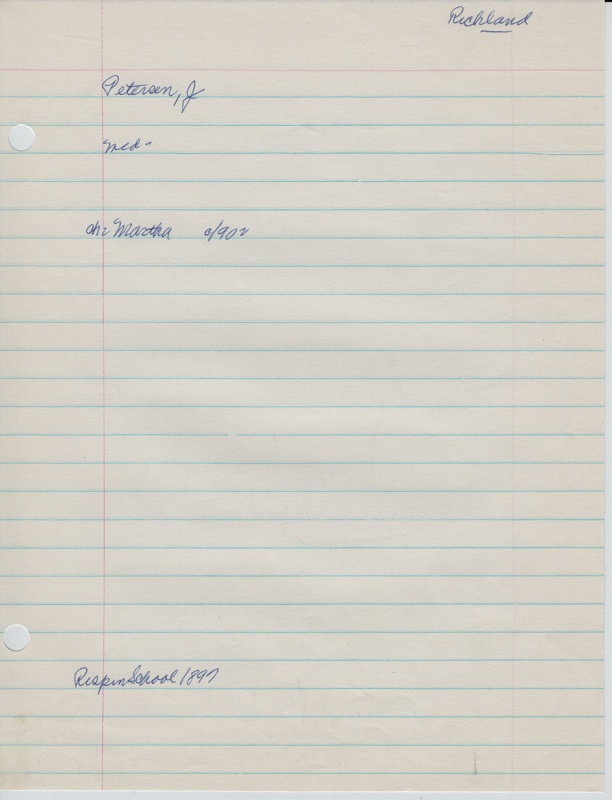 Richland
Petersen, J
md-
ch: Martha c/902
Rispin School 1897